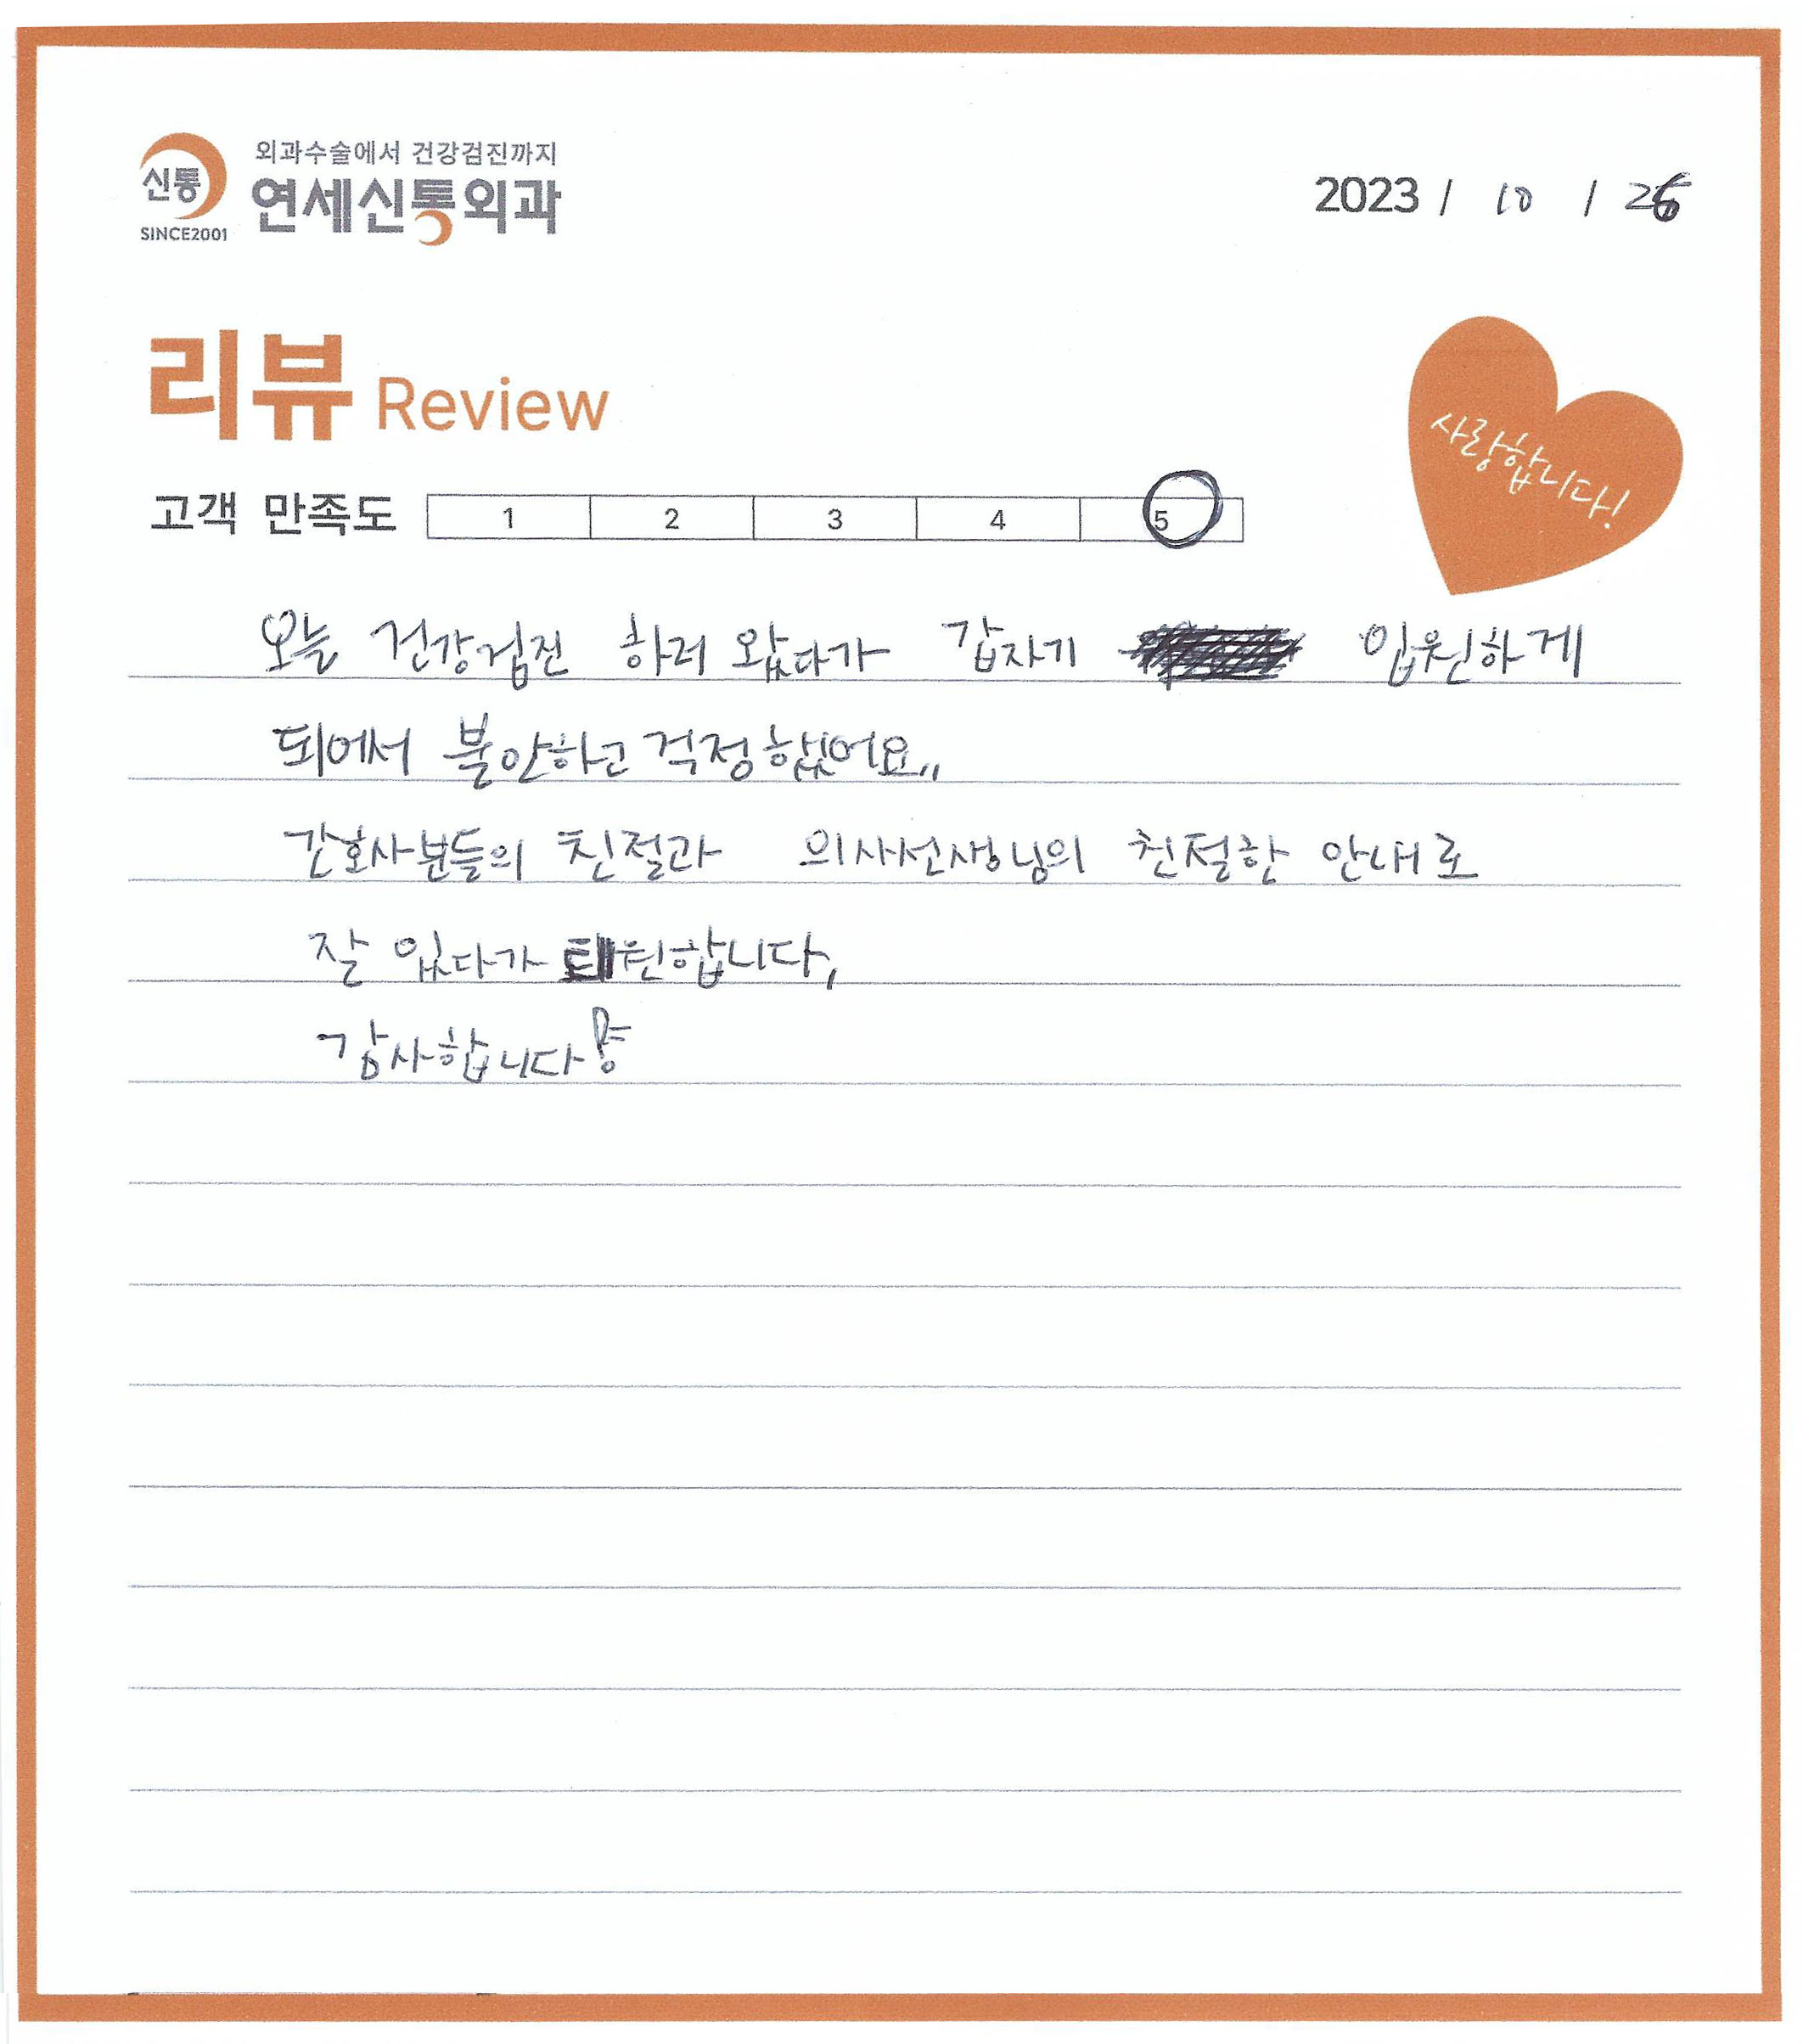 외과수술에서 건강검진까지
신통 연세신통외과
SINCE2001
2023 / 10 / 26
리뷰 Review
사랑합니다!
고객 만족도 1 2 3 4 5
오늘 건강검진 하러 왔다가 갑자기 입원하게
되어서 불안하고 걱정했었어요,,
간호사분들의 친절과 의사선생님의 친절한 안내로
잘 있다가 퇴원합니다,
감사합니다!